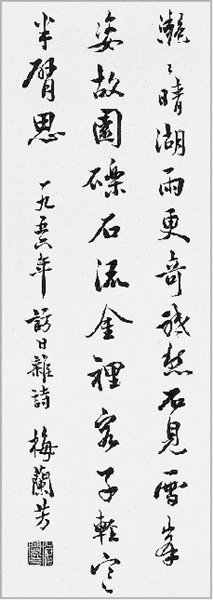 瀲〻晴湖雨更奇愁石見雪峯
姿故園礫石流金裡客子輕寒
半臂思
一九五六年 訪日雜詩 梅蘭芳